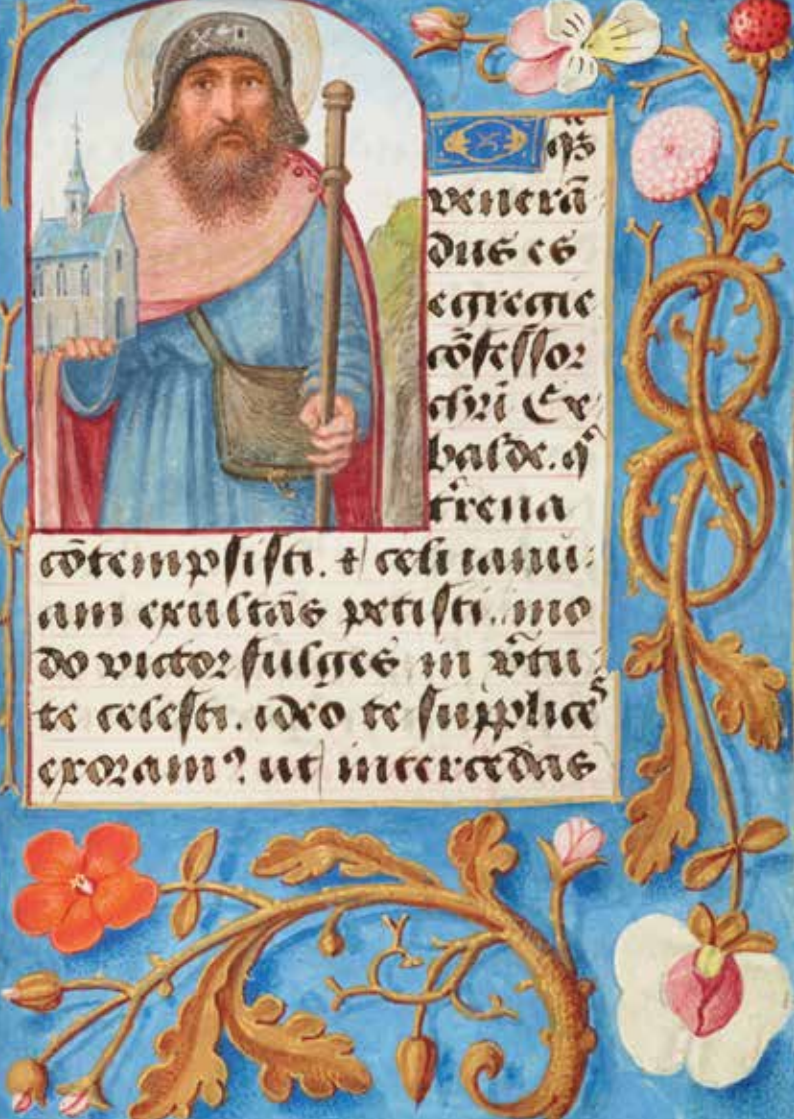 venerā
dus es
egregie
cōfessor
chri̅ Se
balde. qͥ
t̓rena
cōtempsisti. ⁊ celi ianu
am exultās petisti. mo
do victor fulges in v̓tu
te celesti. ideo te supplicēs
exoramꝰ ut intercedas